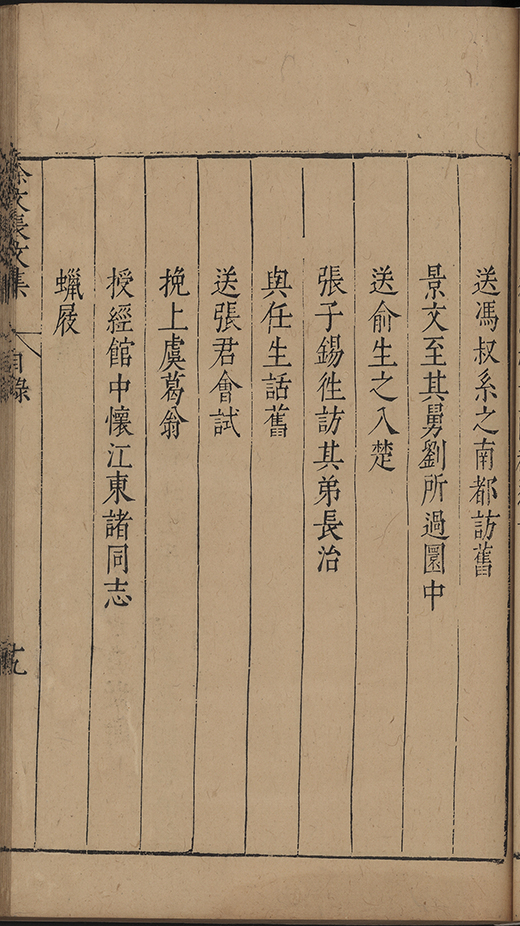 送馮叔系之南都訪舊
景文至其舅劉所過圜中
送俞生之入楚
張子錫徃訪其弟長治
與任生話舊
送張君會試
挽上虞葛翁
授經館中懷江東諸同志
蠟屐
徐文長文集
目錄